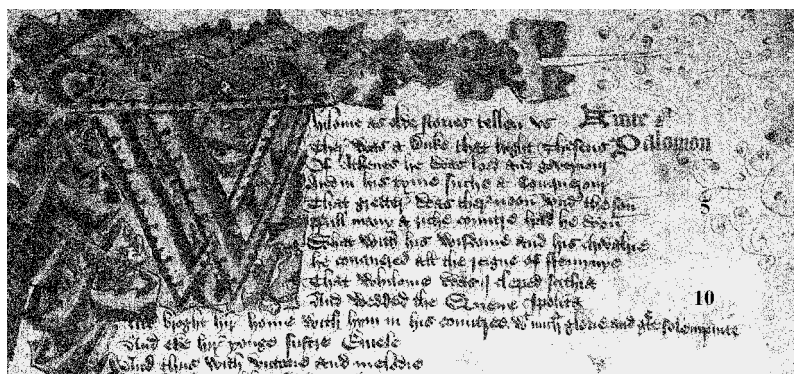 Whilome as olde stories tellen us
Ther was a Duke that hight Theseus
Of Athenes he was lord and governour
And in his tyme suche a Conquerour
That gretter was ther noon undir the son
Full many a riche contre had he won
What with his wisdome and his chivalrie
he conquered all the regne of
That whilome was I cleped
And wedded the Quene Ipolita
And broght hir home with hym in his contree with much glorie and gret solempnite
And eke hir yonge suster Emelе
And thus with victorie and melodie
Palamon
5
10